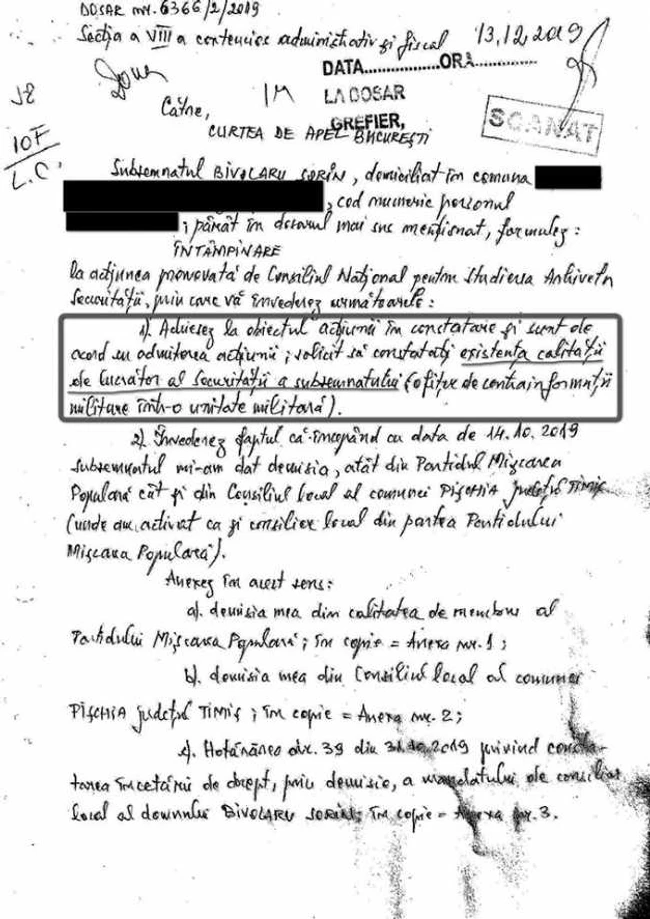 DOSAR nr. 6366/2/2019
Secția a VIII a contencios administrativ și fiscal
13.12.2019
DATA...............ORA...............
LA DOSAR
GREFIER,
SCANAT
Către,
CURTEA DE APEL BUCUREȘTI
Subsemnatul BIVOLARU SORIN, domiciliat în comuna
, cod numeric personal
, pârât în dosarul mai sus menționat, formulez:
ÎNTÂMPINARE
la acțiunea promovată de Consiliul Național pentru Studierea Arhivelor
Securității, prin care vă învederez următoarele:
1). Achiesez la obiectul acțiunii în constatare și sunt de
acord cu admiterea acțiunii; solicit să constatați existența calității
de lucrător al Securității a subsemnatului (ofițer de contrainformații
militare într-o unitate militară).
2). Învederez faptul că începând cu data de 14.10.2019
subsemnatul mi-am dat demisia, atât din Partidul Mișcarea
Populară cât și din Consiliul Local al comunei PIȘCHIA județul TIMIȘ
(unde am activat ca și consilier local din partea Partidului
Mișcarea Populară).
Anexez în acest sens:
a). demisia mea din calitatea de membru al
Partidului Mișcarea Populară; în copie = Anexa nr. 1;
b). demisia mea din Consiliul local al comunei
PIȘCHIA județul TIMIȘ; în copie = Anexa nr. 2;
c). Hotărârea nr. 39 din 31.10.2019 privind consta-
tarea încetării de drept, prin demisie, a mandatului de consilier
local al domnului BIVOLARU SORIN; în copie = Anexa nr. 3.